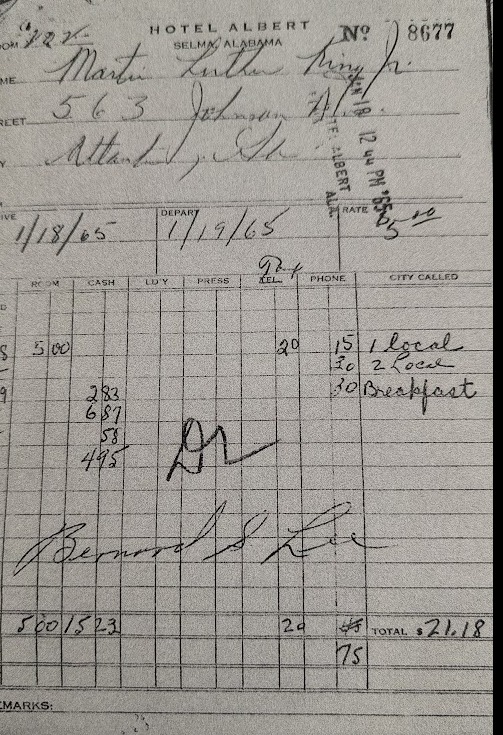 HOTEL ALBERT
SELMA, ALABAMA
Nº 18677
OOM 122
ME Martin Luther King Jr.
REET 563 Johnson
Y Atlanta, Ga.
JAN 18 12 44 PM '65
ALBERT
ALA.
IVE 1/18/65 DEPART 1/19/65 RATE 5.00
ROOM CASH LD'Y PRESS TEL. PHONE CITY CALLED
5 00 20 15 1 local
30 2 Local
2 83 30 Breakfast
6 87
58
4 95
Bernard S Lee
5 00 15 23 20 TOTAL $ 21.18
75
EMARKS: